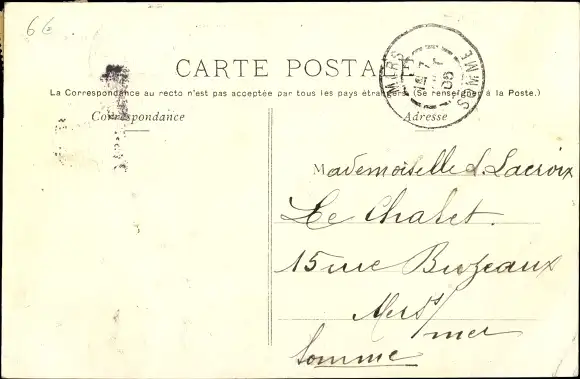 66
CARTE POSTALE
La Correspondance au recto n'est pas acceptée par tous les pays étrangers (Se renseigner à la Poste.)
Correspondance
Adresse
MERS
SOMME
Mademoiselle J. Lacroix
Le Chalet.
15 rue Buzeaux
Mers s/
mer
Somme